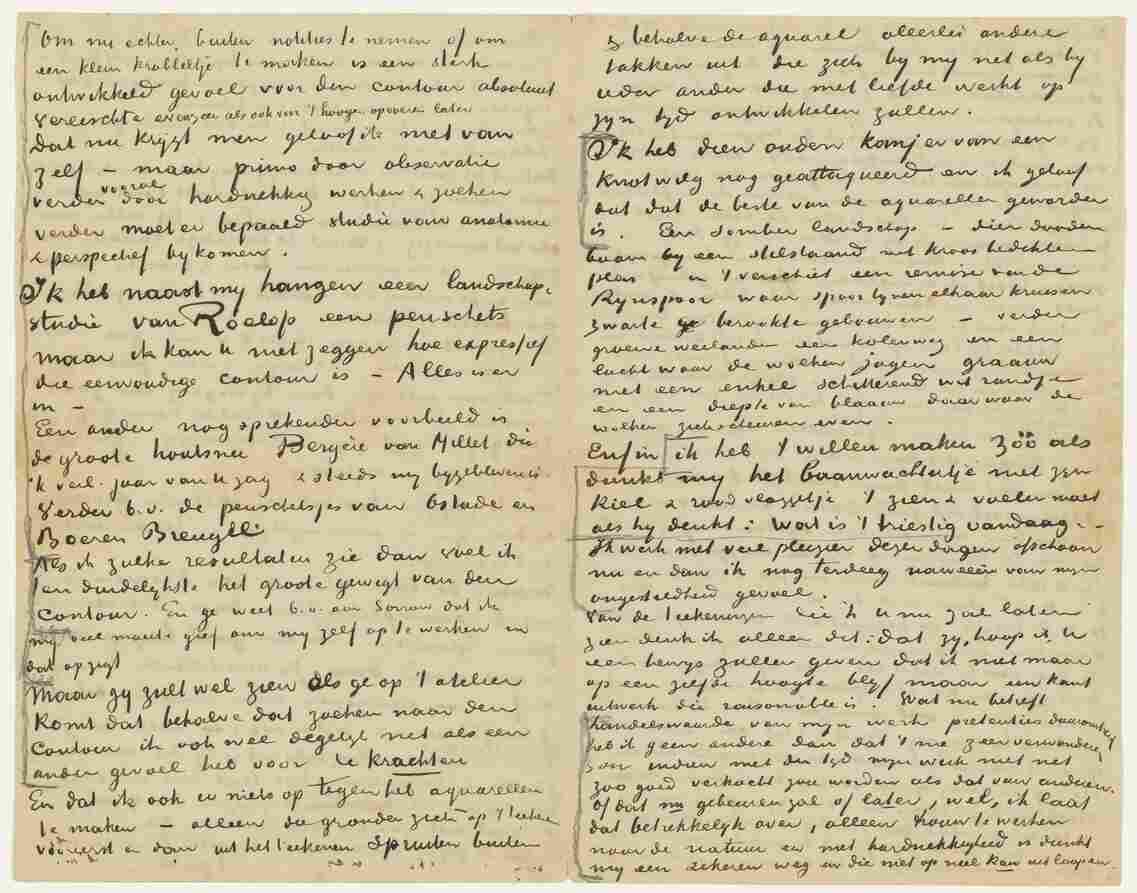 Om nu echter buiten notities te nemen of om
een klein krabbeltje te maken is een sterk
ontwikkeld gevoel voor den contour absoluut
vereischte evenzeer als ook voor 't hooger opvoeren later
dat nu krijgt men geloof ik niet van
zelf – maar primo door observatie
verder vooral door hardnekkig werken & zoeken
verder moet er bepaald studie van anatomie
& perspectief bykomen.
Ik heb naast my hangen een landschap-
studie van Roelofs een penschets
maar ik kan U niet zeggen hoe expressief
die eenvoudige contour is – Alles is er
in –
Een ander nog sprekender voorbeeld is
de groote houtsnee Bergère van Millet die
'k verl. jaar van U zag & steeds my bygebleven is.
Verder b.v. de penschetsjes van Ostade en
Boeren Breugel.
Als ik zulke resultaten zie dan voel ik
ten duidelykste het groote gewigt van den
contour. En ge weet b.v. aan Sorrow dat ik
my veel moeite geef om my zelf op te werken in
dat opzigt
Maar gy zult wel zien als ge op 't atelier
komt dat behalve dat zoeken naar den
contour ik ook wel degelyk net als een
ander gevoel heb voor de krachten
En dat ik ook er niets op tegen heb aquarellen
te maken – alleen de grondslag zit op 't teekenen
vooreerst en dan uit het teekenen spruiten buiten
& behalve de aquarel allerlei andere
takken uit die zich by my net als by
ieder ander die met liefde werkt op
zyn tyd ontwikkelen zullen.
Ik heb dien ouden kanjer van een
knotwilg nog geattaqueerd en ik geloof
dat dat de beste van de aquarellen geworden
is. Een somber landschap – dien dooden
boom by een stilstaand met kroos bedekten
plas in 't verschiet een remise van de
Rynspoor waar spoorlynen elkaar kruisen
zwart berookte gebouwen – verder
groene weilanden een kolenweg en een
lucht waar de wolken jagen graauw
met een enkel schitterend wit randje
en een diepte van blaauw daar waar de
wolken zich scheuren even.
Enfin ik heb 't willen maken zóó als
dunkt my het baanwachtertje met zyn
kiel & rood vlaggetje 't zien & voelen moet
als hy denkt: Wat is 't triestig vandaag. –
Ik werk met veel pleyzier dezer dagen ofschoon
nu en dan ik nog terdeeg naweeën van myn
ongesteldheid gevoel.
Van de teekeningen die ik U nu zal laten
zien denk ik alleen dit: dat zy, hoop ik, U
een bewys zullen geven dat ik niet maar
op een zelfde hoogte blyf maar een kant
uitwerk die raisonable is. Wat nu betreft
handelswaarde van myn werk pretenties daaromtrent
heb ik geen andere dan dat 't me zeer verwonderen
zou indien met der tyd myn werk niet net
zoo goed verkocht zou worden als dat van anderen.
Of dat nu gebeuren zal of later, wel, ik laat
dat betrekkelyk over, alleen trouw te werken
naar de natuur en met hardnekkigheid is dunkt
my een zekeren weg en die niet op niet kan uitloopen.